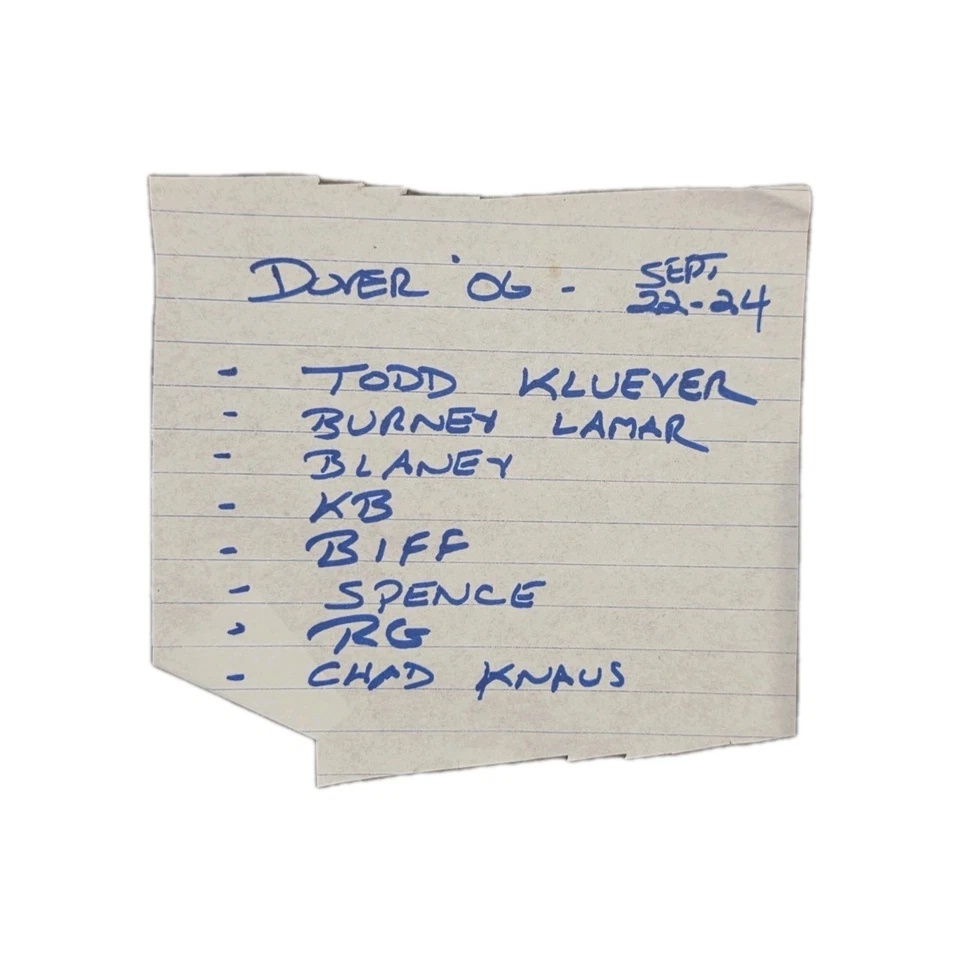 DOVER '06 - SEPT. 22-24
- TODD KLUEVER
- BURNEY LAMAR
- BLANEY
- KB
- BIFF
- SPENCE
- RG
- CHAD KNAUS